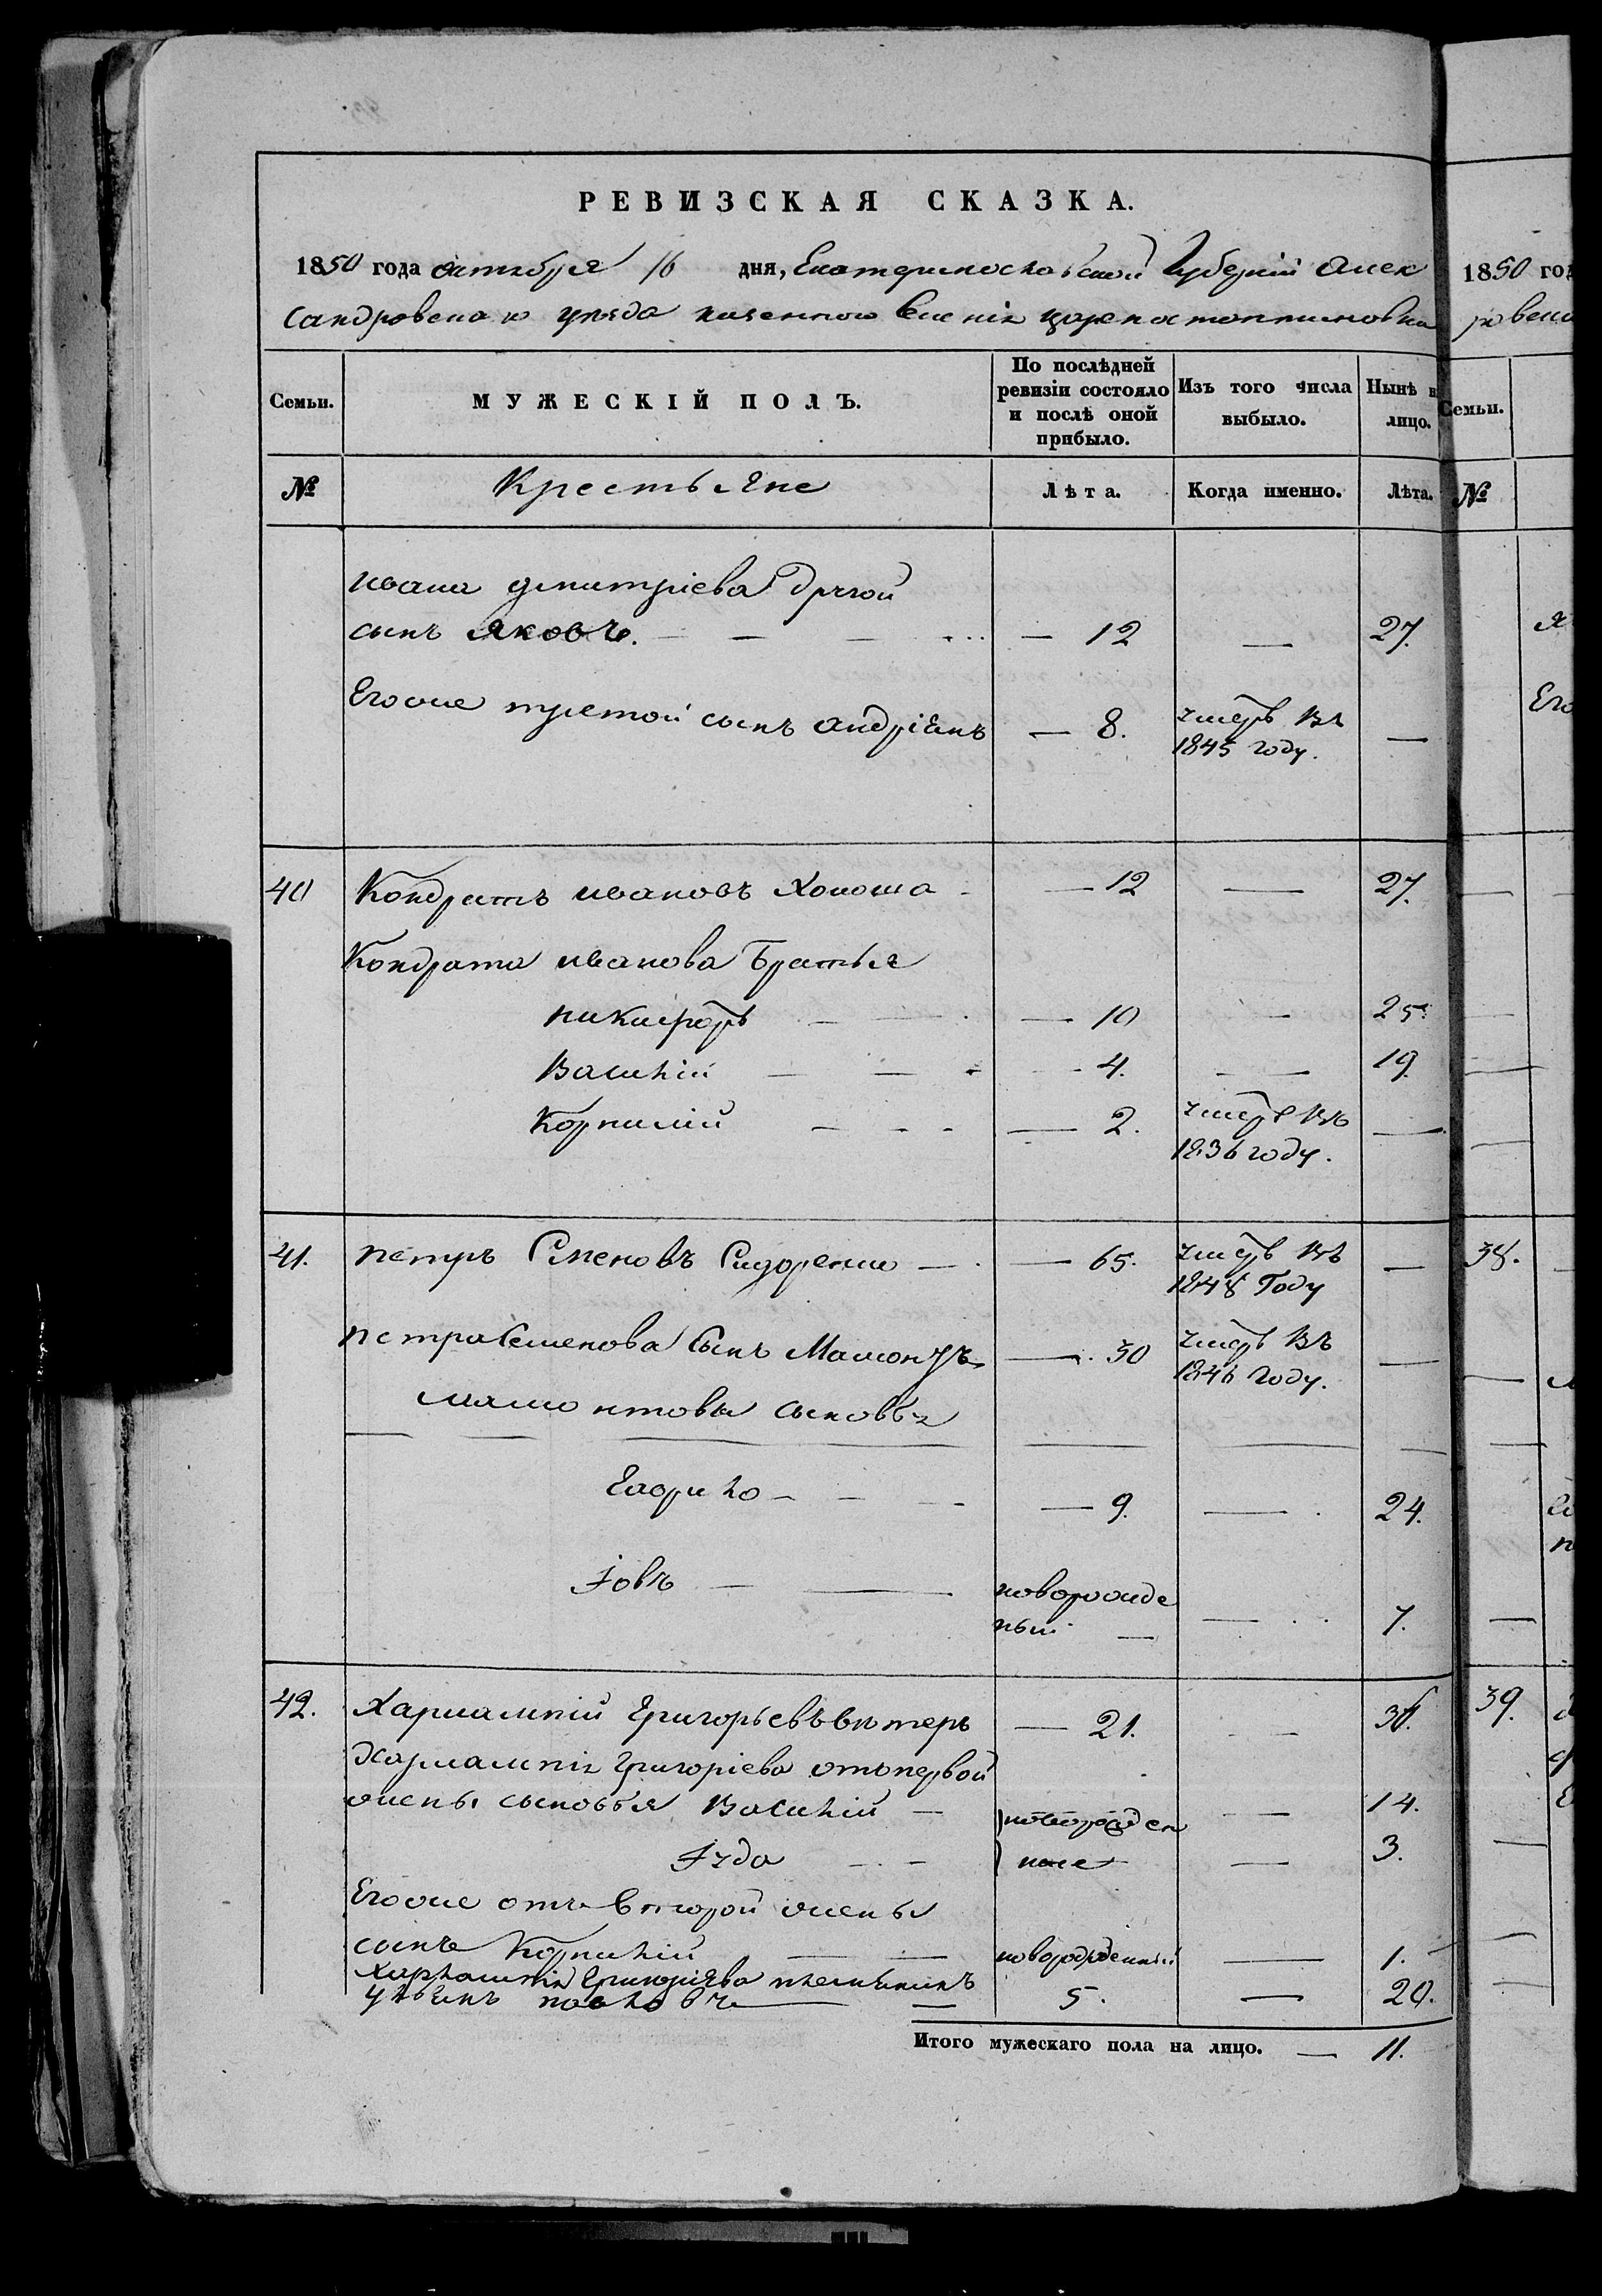 РЕВИЗСКАЯ СКАЗКА.
1850 года октября 16 дня, Екатеринославской Губерніи Алек
сандровскаго уезда казенного селенія Цареконстантиновки
1850 год
Семьи.
МУЖЕСКІЙ ПОЛЪ.
По послѣдней ревизіи состояло и послѣ оной прибыло.
Изъ того числа выбыло.
Нынѣ н лицо.
Семьи.
№ Крестьяне Лѣта. Когда именно. Лѣта. №
ивана дмитріева другой
сынъ яковъ. — 12 — 27.
Егоже третой сынъ андріянъ — 8. умеръ въ 1845 году. —
40 Кондратъ ивановъ Хокоша — 12 — 27.
Кондрата иванова Братья
никифоръ — 10 — 25.
Василій — 4. — 19
Корнилій — 2. умеръ въ 1836 году. —
41. петръ Семеновъ Сидоренко — 65. умеръ въ 1848 Году —
38.
петра Семенова Сынъ Мамонтъ — 30 умеръ въ 1846 году. —
мамонтовы сыновья
Гаврило — 9. — 24.
Іовъ — новорожде
ный — 7.
42. Харлампій Григорьевъ — 21. — 36.
39.
Харлампія Григоріева отъ первой
жены сыновья Василій — новорожден — 14.
Іуда — ные — 3.
Егоже отъ второй жены
сынъ Корнилій — новорожденный — 1.
Харлампія Григоріева племяникъ
павловъ — 5. — 20.
Итого мужескаго пола на лицо. — 11.